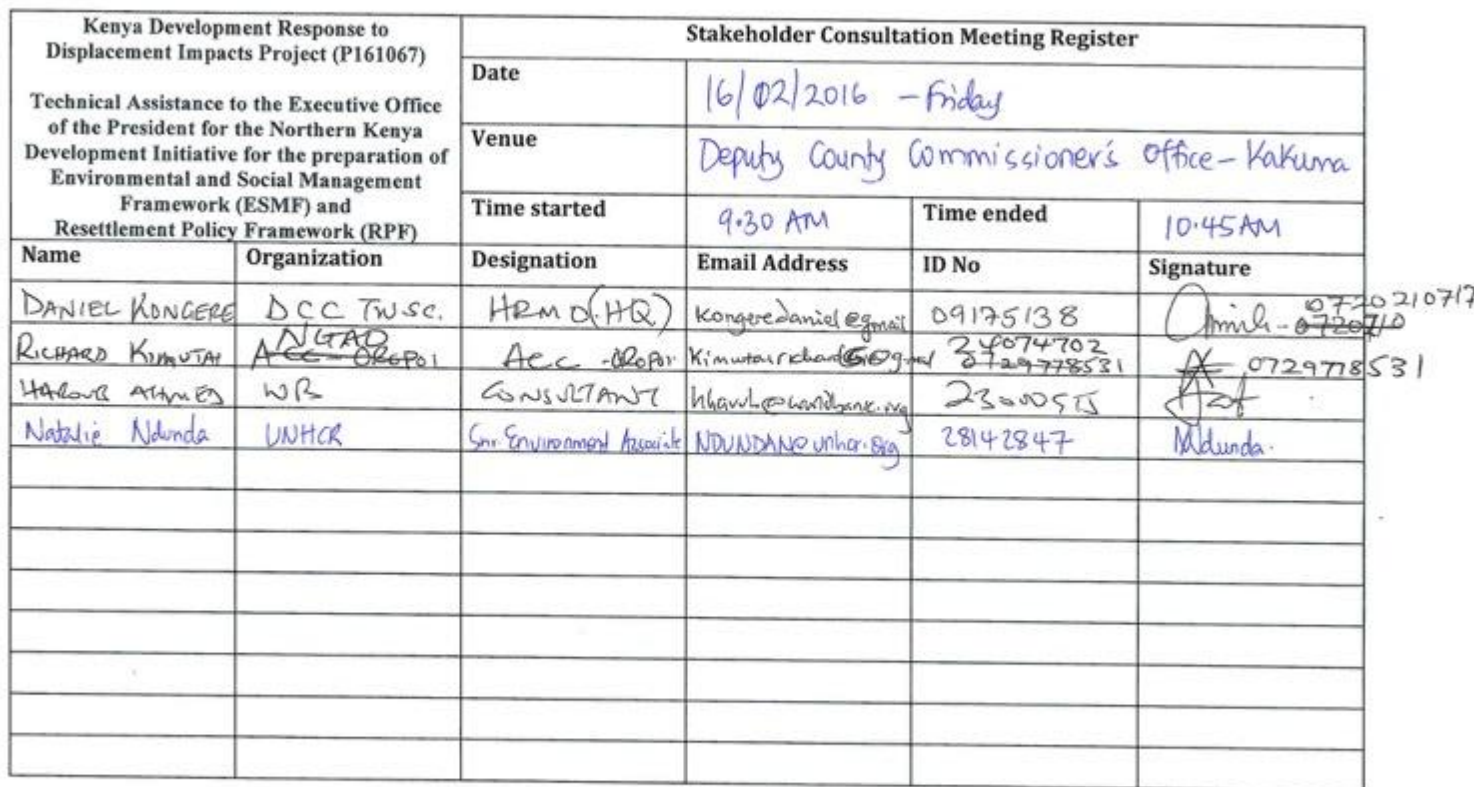 Kenya Development Response to
Displacement Impacts Project (P161067)
Technical Assistance to the Executive Office
of the President for the Northern Kenya
Development Initiative for the preparation of
Environmental and Social Management
Framework (ESMF) and
Resettlement Policy Framework (RPF)
Stakeholder Consultation Meeting Register
Date 16/02/2016 - Friday
Venue Deputy County Commissioner's Office - Kakuma
Time started 9.30 AM Time ended 10.45AM
Name Organization Designation Email Address ID No Signature
DANIEL KONGERE DCC TWSC. HRMO(HQ) kongeredaniel@gmail 09175138 0720210717
NGAO 24074702
RICHARD KIMUTAI ACC - OROPOI ACC - OROPOI 0729778531 0729778531
HAROUB AHMED WB CONSULTANT
Natalie Ndunda UNHCR Snr. Environment Associate NDUNDAN@unhcr.org 28142847 Ndunda.